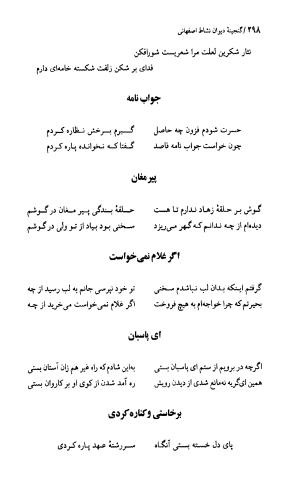 ۲۹۸ / گنجینهٔ دیوان نشاط اصفهانی
نثار شکرین لعلت مرا شعریست شورافکن
فدای بر شکن زلفت شکسته خامه‌ای دارم
جواب نامه
حسرت شودم فزون چه حاصل گیرم برخش نظاره کردم
چون خواست جواب نامه قاصد گفتا که نخوانده پاره کردم
پیر مغان
گوش بر حلقهٔ زهاد ندارم تا هست حلقهٔ بندگی پیر مغان در گوشم
دیده‌ام از چه ندانم که گهر می‌ریزد سخنی بود بیاد از تو ولی در گوشم
اگر غلام نمی‌خواست
گرفتم اینکه بدان لب نباشدم سخنی تو خود نپرسی جانم به لب رسید از چه
بحیرتم که چرا خواجه‌ام به هیچ فروخت اگر غلام نمی‌خواست می‌خرید از چه
ای پاسبان
اگرچه در برویم از ستم ای پاسبان بستی به‌این شادم که راه غیر هم زان آستان بستی
همین ای‌گریه نه‌مانع شدی از دیدن رویش ره آمد شدن از کوی او بر کاروان بستی
برخاستی و کناره کردی
پای دل خسته بستی آنگاه سررشتهٔ عهد پاره کردی